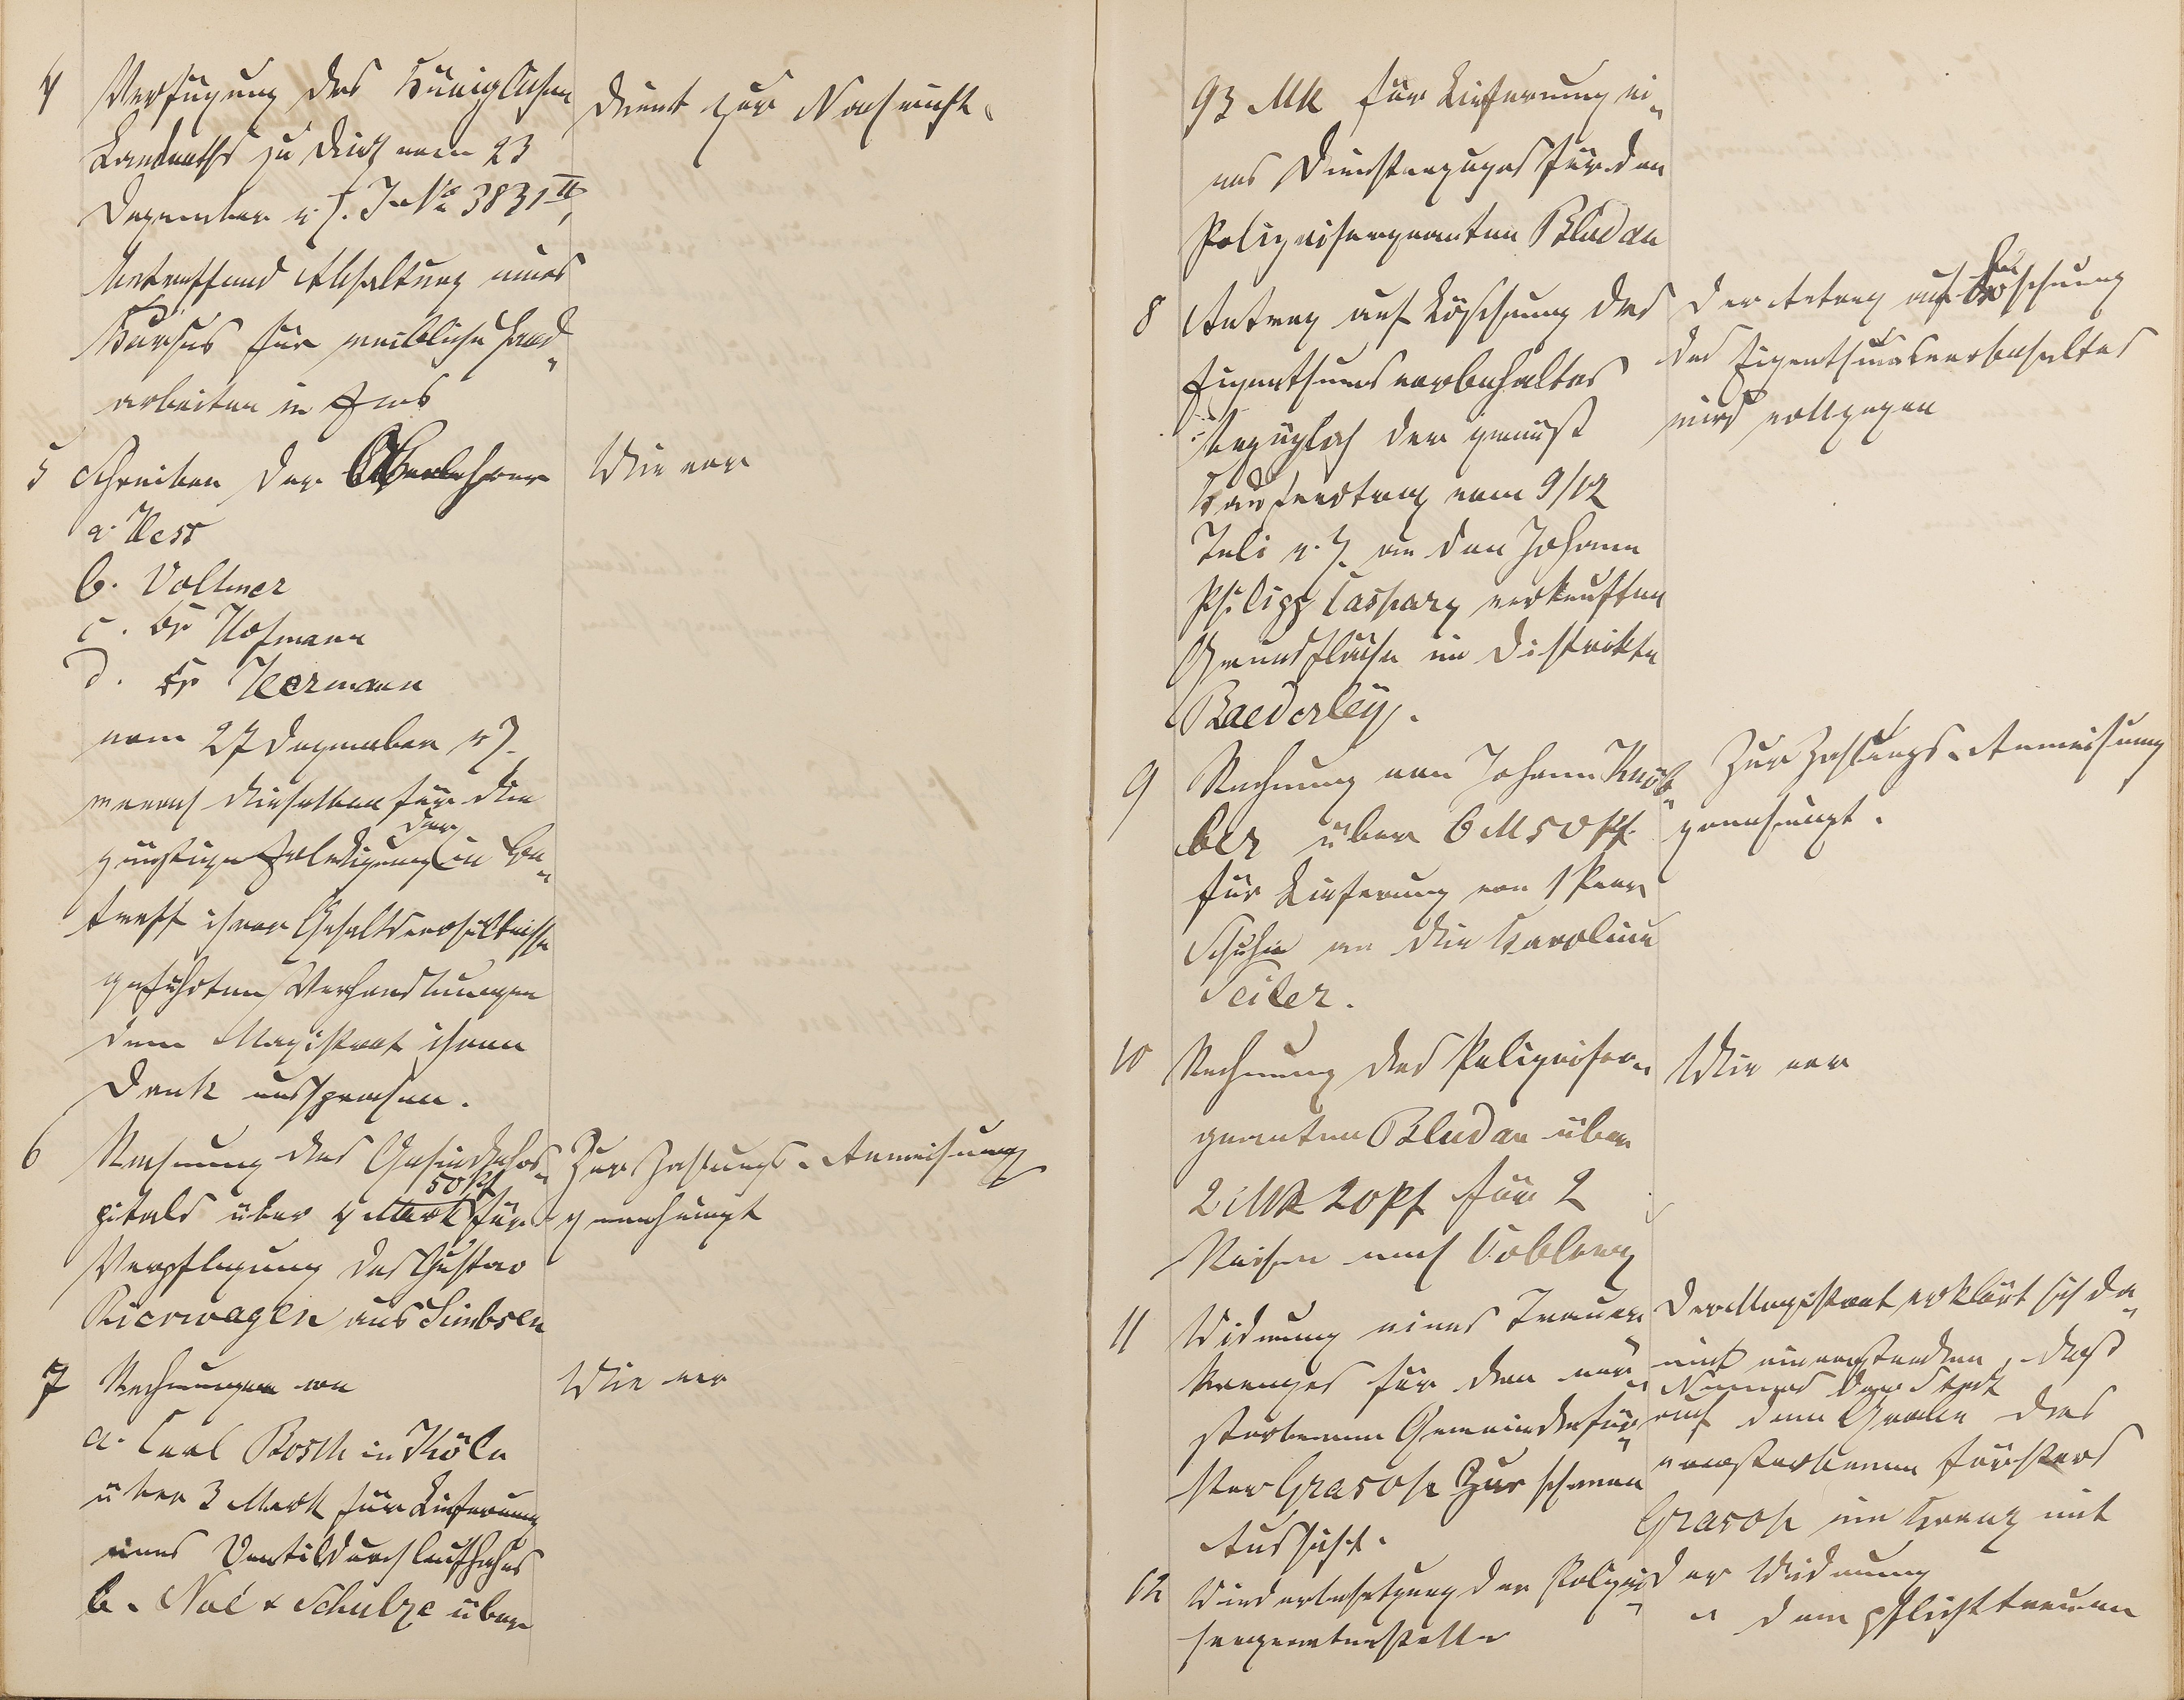 4 Verfügung des Königlichen
Landraths zu Diez vom 23
Dezember v. J. J. No 3831 II,
betreffend Abhaltung eines
Kursus für weibliche Hand„
arbeiten in Ems
dient zur Nachricht.
5 Schreiben der Oberlehrer
a. Hess
b. Vollmer
c. Dr Hofmann
d. Dr Hermann
vom 27 Dezember v J.
wonach dieselben für die
günstige Erledigung der in Be„
treff ihrer Gehaltsverhältnisse
geführten Verhandlungen
dem Magistrat ihren
Dank aussprechen.
Wie vor
6 Rechnung des Gesindehos„
pitals über 4 Mark 50 Pf für
Verpflegung des Gustav
Rierwagen aus Simbsen
Zur Zahlungs-Anweisung
genehmigt
7 Rechnungen von
a. Carl Bosch in Köln
über 3 Mark für Lieferung
eines Ventildurchlaufhahns
b. Noé & Schulze über
Wie vor
93 MK für Lieferung ei„
nes Dienstanzuges für den
Polizeisergeanten Bludau
8 Antrag auf Löschung des
Eigenthumsvorbehaltes
bezüglich der gemäß
Kaufvertrag vom 9/12
Juli v. J. an den Johann
Philipp Caspary verkauften
Grundfläche im Distrikte
Baederley.
Der Antrag auf Löschung
des Eigenthumsvorbehaltes
wird vollzogen
9 Rechnung von Johann Knö„
bler über 6 M 50 Pf.
für Lieferung von 1 Paar
Schuhe an die Karoline
Seiler.
Zur Zahlungs-Anweisung
genehmigt.
10 Rechnung des Polizeiser„
geanten Bludau über
2 MK 20 Pf für 2
Reisen nach Coblenz
Wie vor
11 Widmung eines Trauer„
kranzes für den ver„
storbenen Gemeindeför„
ster Grasose zur schönen
Aussicht.
Der Magistrat erklärt sich da„
mit einverstanden, daß
Namens der Stadt
auf dem Grabe des
verstorbenen Försters
Grasose ein Kranz mit
der Widmung
„ dem pflichttreuen
12 Wiederbesetzung der Polizei„
sergeantenstelle